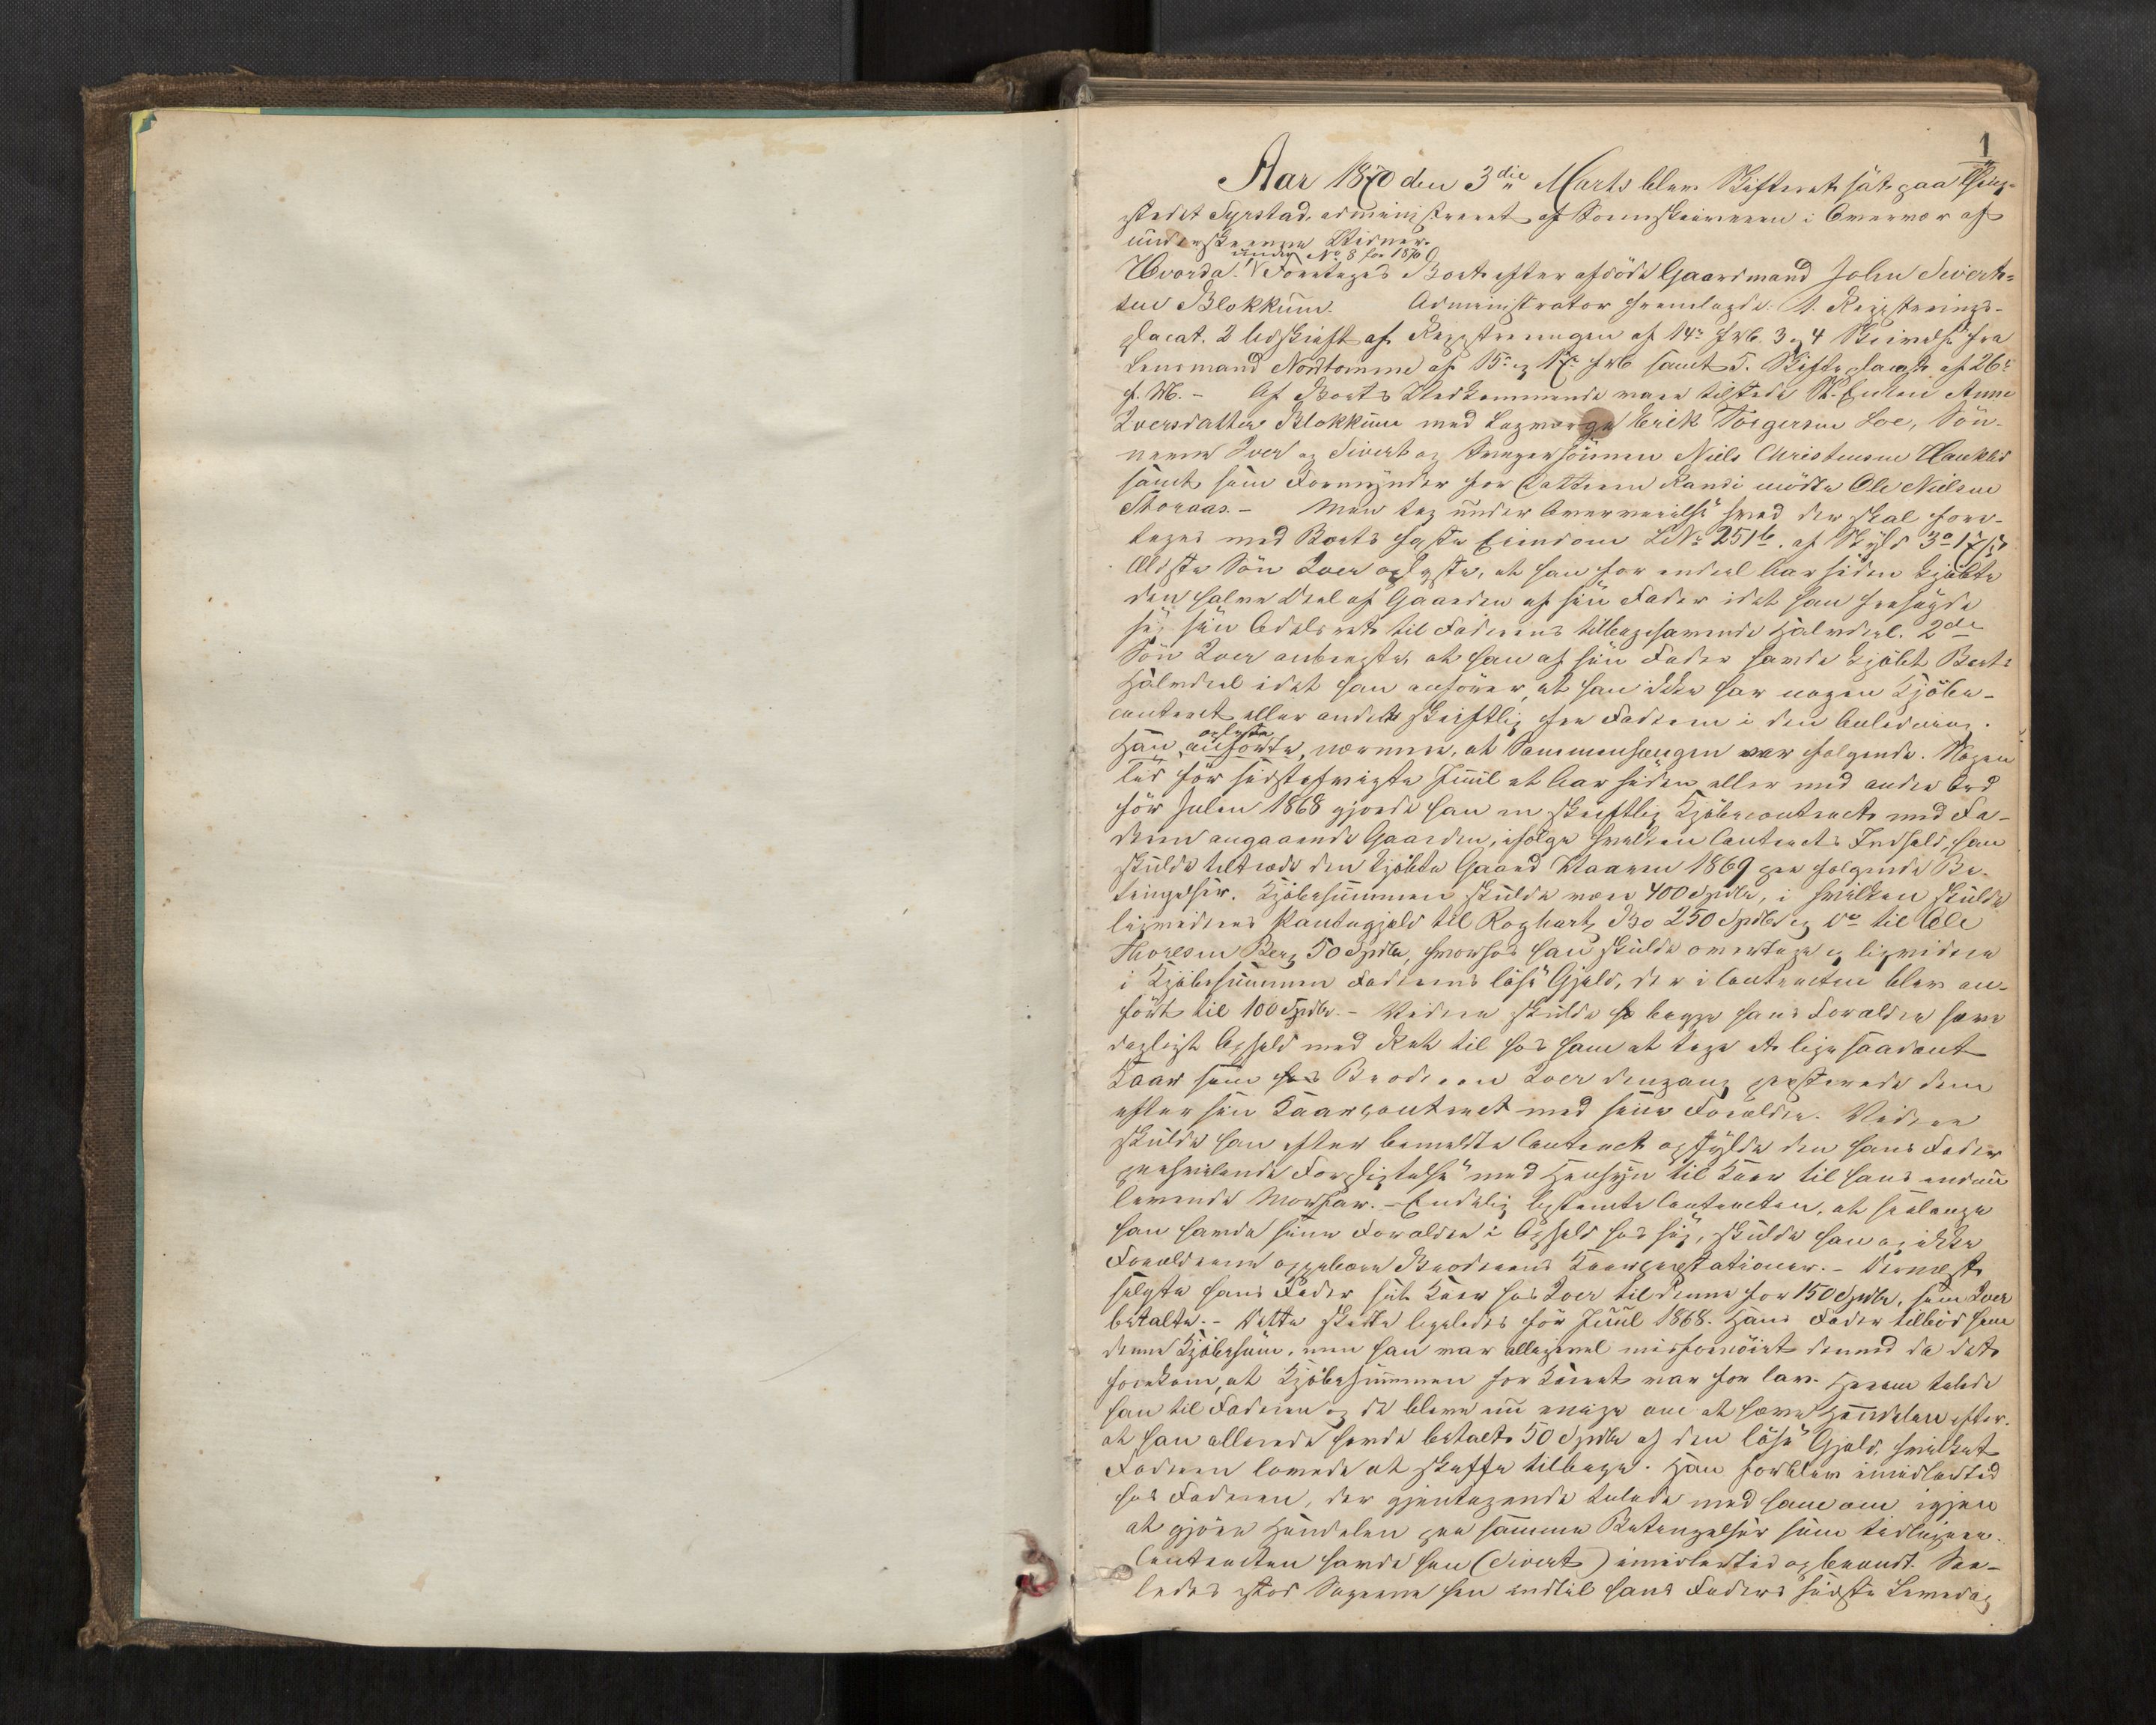 1
Aar 1870 den 3die Marts blev Skifteret sat paa Thing-
stedet Syrstad, administreret af Sorenskriveren i Overvær af
underskrevne Vidner.
under No 8 for 1870
Hvorda! Foretoges Boet efter afdøde Gaardmand John Sivert-
sen Blokkum. Administrator fremlagde: 1. Registrerings-
placat. 2 Udskrift af Registreringen af 14de Feb. 3 og 4 Skrivelse fra
Lensmand Nordtømme af 15de og 17de Feb samt 5. Skifteplacat af 26de
f. M. - Af Boets Vedkommende vare tilstede Enken Anne
Iversdatter Blokkum med Laugværge Erik Torgersen Loe, Søn-
nerne Iver og Sivert og Svigersønnen Niels Christensen Haukli
samt som Formynder for Datteren Randi mødte Ole Nielsen
Storaas. - Man tog under Overveielse hvad der skal fore-
tages med Boets faste Eiendom LNo 251b. af Skyld
Ældste Søn Iver oplyste, at han for endeel Aar siden kjøbte
den halve Deel af Gaarden af sin Fader idet han frasagde
sig sin Odelsret til Faderens tilbagehavende Halvdeel. 2de
Søn Iver anbragte, at han af sin Fader havde kjøbt Boets
Halvdeel idet han anfører, at han ikke har nogen Kjøbe-
contract eller andet skriftlig fra Faderen i den Anledning.
oplyste
Han anførte, nærmere, at Sammenhængen var følgende. Nogen
Tid før sidstafvigte Juul et Aar siden eller med andre Ord
før Julen 1868 gjorde han en skriftlig Kjøbecontract med Fa-
deren angaaende Gaarden, ifølge hvilken Contracts Indhold, han
skulde tiltræde den kjøbte Gaard Vaaren 1869 paa følgende Be-
tingelser. Kjøbesummen skulde være 400 Spdlr, i hvilken skulde
liqvideres Pantegjeld til 250 Spdlr og do til Ole
Thoresen Berg 50 Spdlr, hvorhos han skulde overtage og liqvidere
i Kjøbesummen Faderens løse Gjeld, der i Contracten blev an-
ført til 100 Spdlr. - Videre skulde begge hans Forældre have
dagligt Ophold med Ret til hos ham at tage et lige saadant
Kaar som Broderen Iver dengang præsterede dem
efter sin Kaarcontract med sine Forældre. Videre
skulde han efter bemeldte Contract opfylde den hans Fader
paahvilende Forpligtelse med Hensyn til Kaar til hans endnu
levende Morfar. - Endelig bestemte Contracten, at saalænge
han havde sine Forældre i Ophold hos sig, skulde han og ikke
Forældrene oppebære Broderens Kaarpræstationer. - Dernæst
solgte hans Fader sit Kaar hos Iver til denne for 150 Spdlr, som Iver
betalte. - Dette skede ligeledes før Juul 1868. Hans Fader tilbød ham
denne Kjøbesum, men han var alligevel misfornøiet dermed da det
forekom, at Kjøbesummen for Kaaret var for lav. Herom talede
han til Faderen og de bleve nu enige om at hæve Handelen efter-
at han allerede havde betalt 50 Spdlr af den løse Gjeld, hvilket
Faderen lovede at skaffe tilbage. Han forblev imidlertid
hos Faderen, der gjentagende talede med ham om igjen
at gjøre Handelen paa samme Betingelser som tidligere.
Contracten havde han (Sivert) imidlertid opbrændt. Saa-
ledes stod Sagerne hen indtil hans Faders sidste Levedag